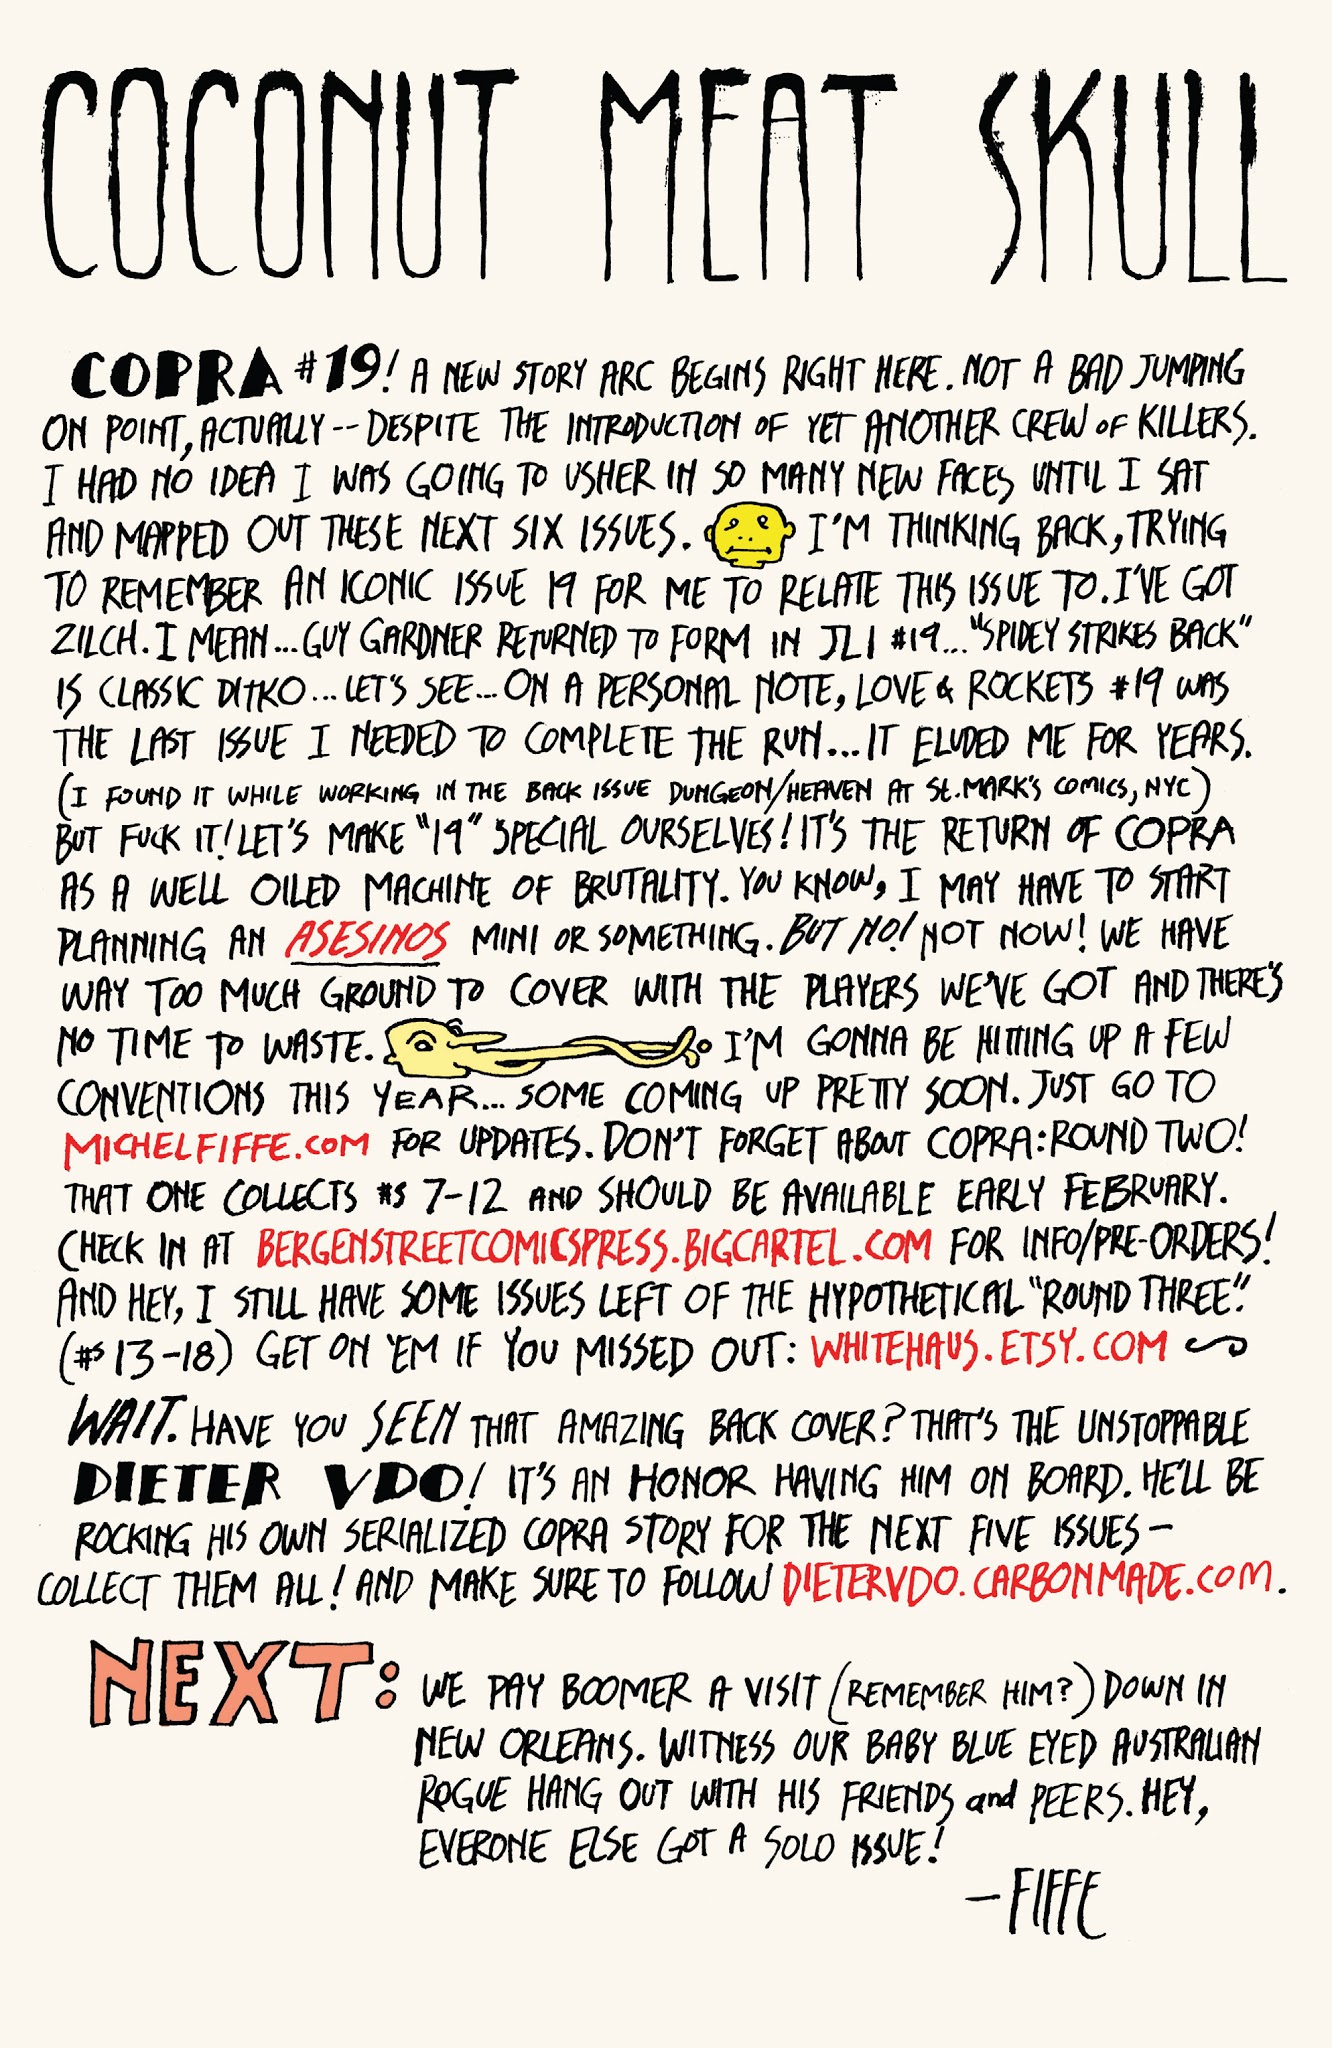 COCONUT MEAT SKULL
COPRA #19! A NEW STORY ARC BEGINS RIGHT HERE. NOT A BAD JUMPING
ON POINT, ACTUALLY -- DESPITE THE INTRODUCTION OF YET ANOTHER CREW OF KILLERS.
I HAD NO IDEA I WAS GOING TO USHER IN SO MANY NEW FACES UNTIL I SAT
AND MAPPED OUT THESE NEXT SIX ISSUES. I'M THINKING BACK, TRYING
TO REMEMBER AN ICONIC ISSUE 19 FOR ME TO RELATE THIS ISSUE TO. I'VE GOT
ZILCH. I MEAN... GUY GARDNER RETURNED TO FORM IN JLI #19... "SPIDEY STRIKES BACK"
IS CLASSIC DITKO... LET'S SEE... ON A PERSONAL NOTE, LOVE & ROCKETS #19 WAS
THE LAST ISSUE I NEEDED TO COMPLETE THE RUN... IT ELUDED ME FOR YEARS.
(I FOUND IT WHILE WORKING IN THE BACK ISSUE DUNGEON/HEAVEN AT ST. MARK'S COMICS, NYC)
BUT FUCK IT! LET'S MAKE "19" SPECIAL OURSELVES! IT'S THE RETURN OF COPRA
AS A WELL OILED MACHINE OF BRUTALITY. YOU KNOW, I MAY HAVE TO START
PLANNING AN ASESINOS MINI OR SOMETHING. BUT NO! NOT NOW! WE HAVE
WAY TOO MUCH GROUND TO COVER WITH THE PLAYERS WE'VE GOT AND THERE'S
NO TIME TO WASTE. I'M GONNA BE HITTING UP A FEW
CONVENTIONS THIS YEAR... SOME COMING UP PRETTY SOON. JUST GO TO
MICHELFIFFE.COM FOR UPDATES. DON'T FORGET ABOUT COPRA: ROUND TWO!
THAT ONE COLLECTS #S 7-12 AND SHOULD BE AVAILABLE EARLY FEBRUARY.
CHECK IN AT BERGENSTREETCOMICSPRESS.BIGCARTEL.COM FOR INFO/PRE-ORDERS!
AND HEY, I STILL HAVE SOME ISSUES LEFT OF THE HYPOTHETICAL "ROUND THREE".
(#S 13-18) GET ON 'EM IF YOU MISSED OUT: WHITEHAUS.ETSY.COM
WAIT. HAVE YOU SEEN THAT AMAZING BACK COVER? THAT'S THE UNSTOPPABLE
DIETER VDO! IT'S AN HONOR HAVING HIM ON BOARD. HE'LL BE
ROCKING HIS OWN SERIALIZED COPRA STORY FOR THE NEXT FIVE ISSUES —
COLLECT THEM ALL! AND MAKE SURE TO FOLLOW DIETERVDO.CARBONMADE.COM.
NEXT: WE PAY BOOMER A VISIT (REMEMBER HIM?) DOWN IN
NEW ORLEANS. WITNESS OUR BABY BLUE EYED AUSTRALIAN
ROGUE HANG OUT WITH HIS FRIENDS and PEERS. HEY,
EVERONE ELSE GOT A SOLO ISSUE!
— FIFFE